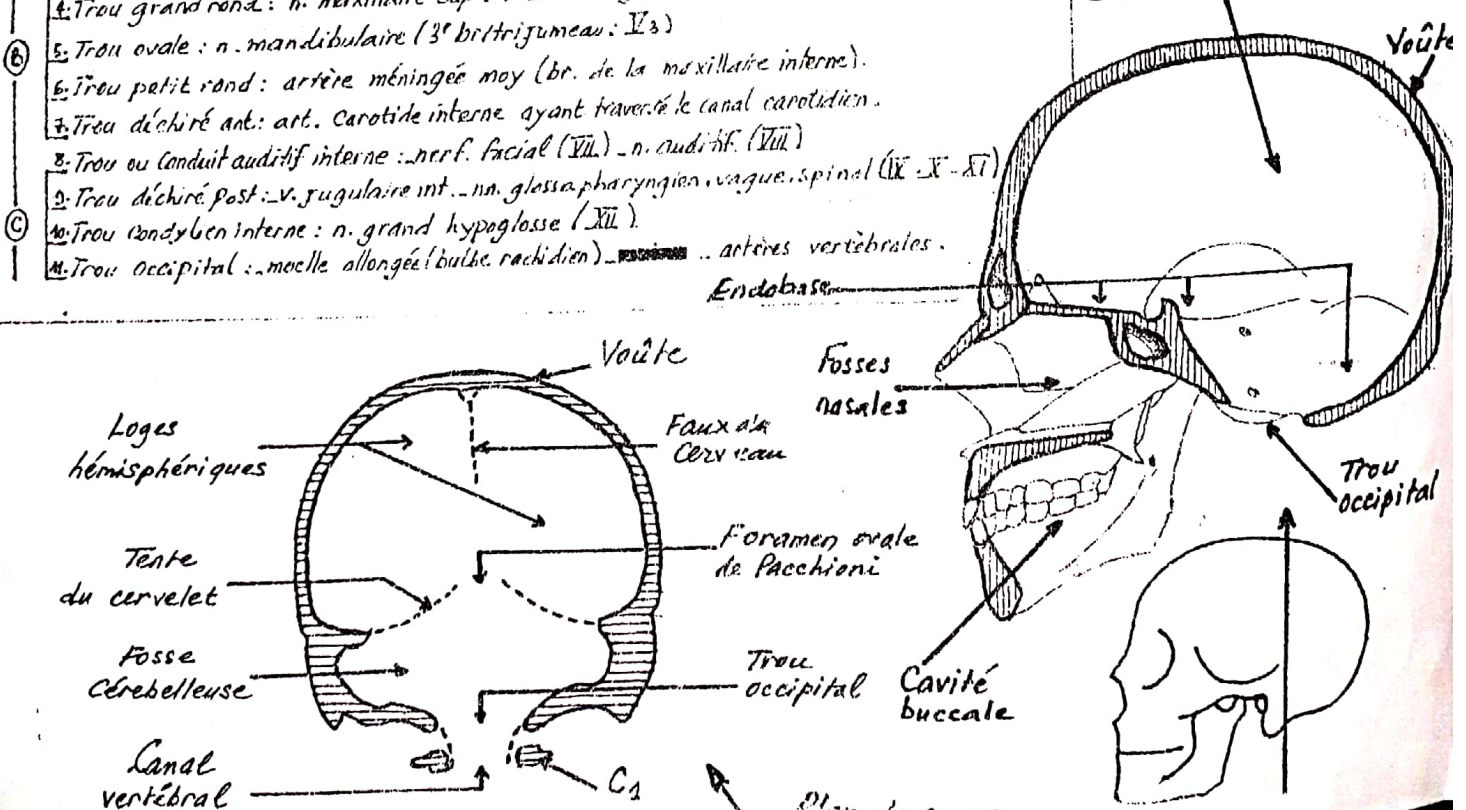 4. Trou grand rond : n.
5. Trou ovale : n. mandibulaire (3e br/trijumeau : V3)
6. Trou petit rond : artère méningée moy (br. de la maxillaire interne).
7. Trou déchiré ant : art. Carotide interne ayant traversé le canal carotidien.
B
8. Trou ou Conduit auditif interne : _nerf. facial (VII) _ n. auditif. (VIII)
9. Trou déchiré post : _v. jugulaire int. _nn. glossopharyngien, vague, spinal (IX - X - XI)
10. Trou condylien interne : n. grand hypoglosse (XII).
11. Trou occipital : _moelle allongée (bulbe rachidien) _ .. artères vertébrales.
C
Voûte
Endobase
Fosses
nasales
Trou
occipital
Cavité
buccale
Voûte
Loges
hémisphériques
Faux du
Cerveau
Tente
du cervelet
Foramen ovale
de Pacchioni
Fosse
Cérebelleuse
Trou
occipital
Canal
vertébral
C1